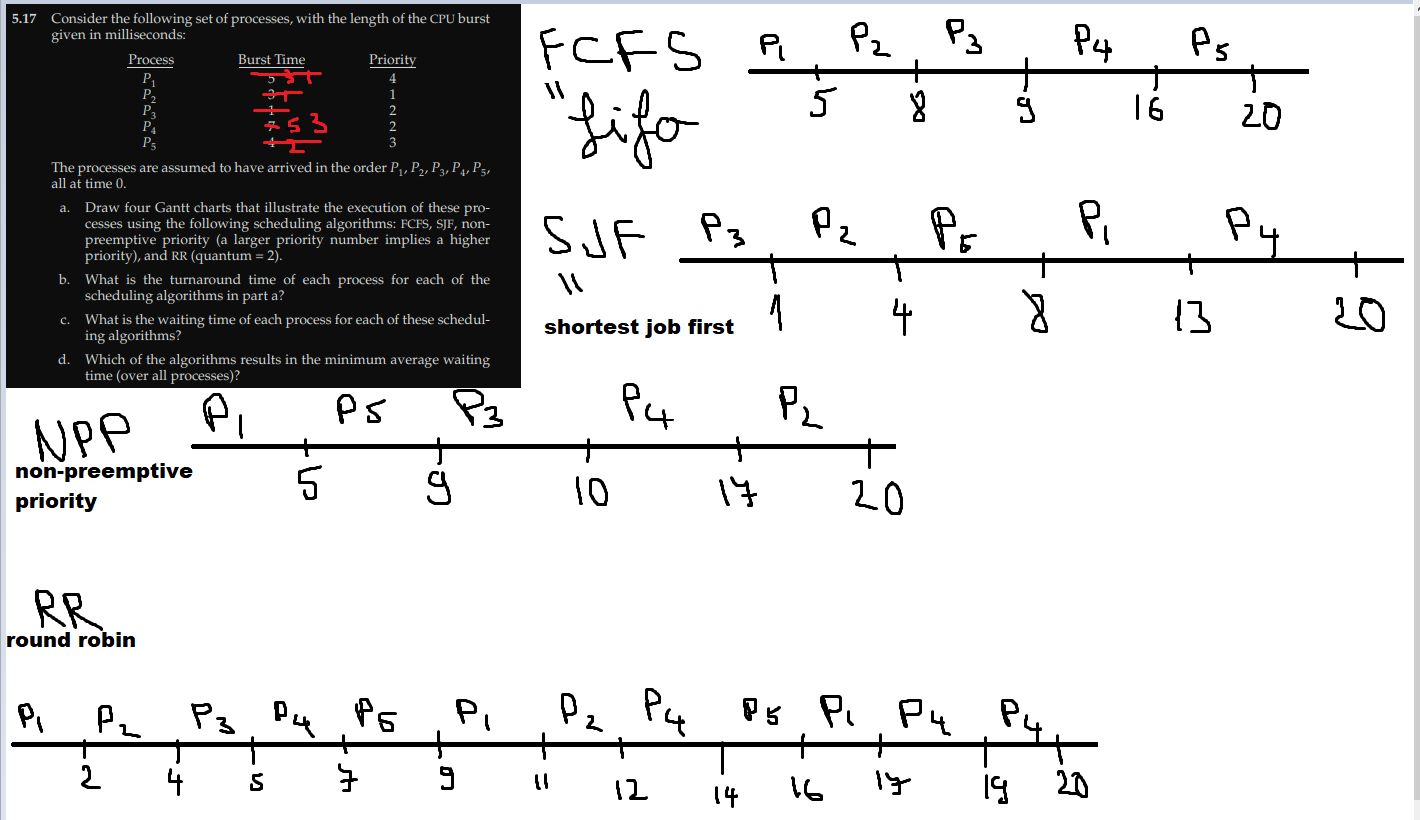 5.17 Consider the following set of processes, with the length of the CPU burst
given in milliseconds:
Process Burst Time Priority
P1 5 3 1 4
P2 3 1 1
P3 1 2
P4 7 5 3 2
P5 4 2 3
The processes are assumed to have arrived in the order P1, P2, P3, P4, P5,
all at time 0.
a. Draw four Gantt charts that illustrate the execution of these pro-
cesses using the following scheduling algorithms: FCFS, SJF, non-
preemptive priority (a larger priority number implies a higher
priority), and RR (quantum = 2).
b. What is the turnaround time of each process for each of the
scheduling algorithms in part a?
c. What is the waiting time of each process for each of these schedul-
ing algorithms?
d. Which of the algorithms results in the minimum average waiting
time (over all processes)?
FCFS
"
fifo
P1 P2 P3 P4 P5
5 8 9 16 20
SJF
"
shortest job first
P3 P2 P5 P1 P4
1 4 8 13 20
NPP
non-preemptive
priority
P1 P5 P3 P4 P2
5 9 10 17 20
RR
round robin
P1 P2 P3 P4 P5 P1 P2 P4 P5 P1 P4 P4
2 4 5 7 9 11 12 14 16 17 19 20